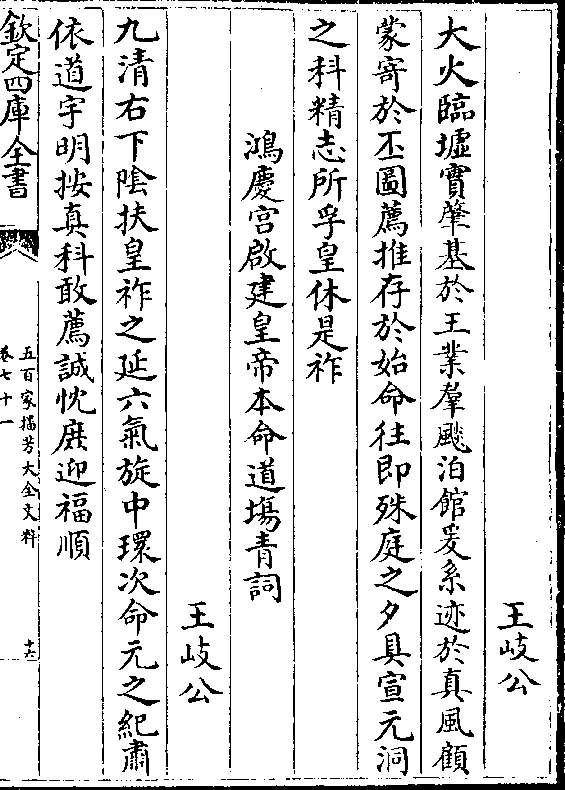 王岐公
大火臨墟實肇基於王業羣飈泊館爰系迹於真風顧
蒙寄於丕圖薦推存於始命往即殊庭之夕具宣元洞
之科精志所孚皇休是祚
鴻慶宮啟建皇帝本命道塲青詞
王岐公
九清右下陰扶皇祚之延六氣旋中環次命元之紀肅
依道宇明按真科敢薦誠忱庻迎福順
欽定四庫全書
五百家播芳大全文粹
卷七十一
十六